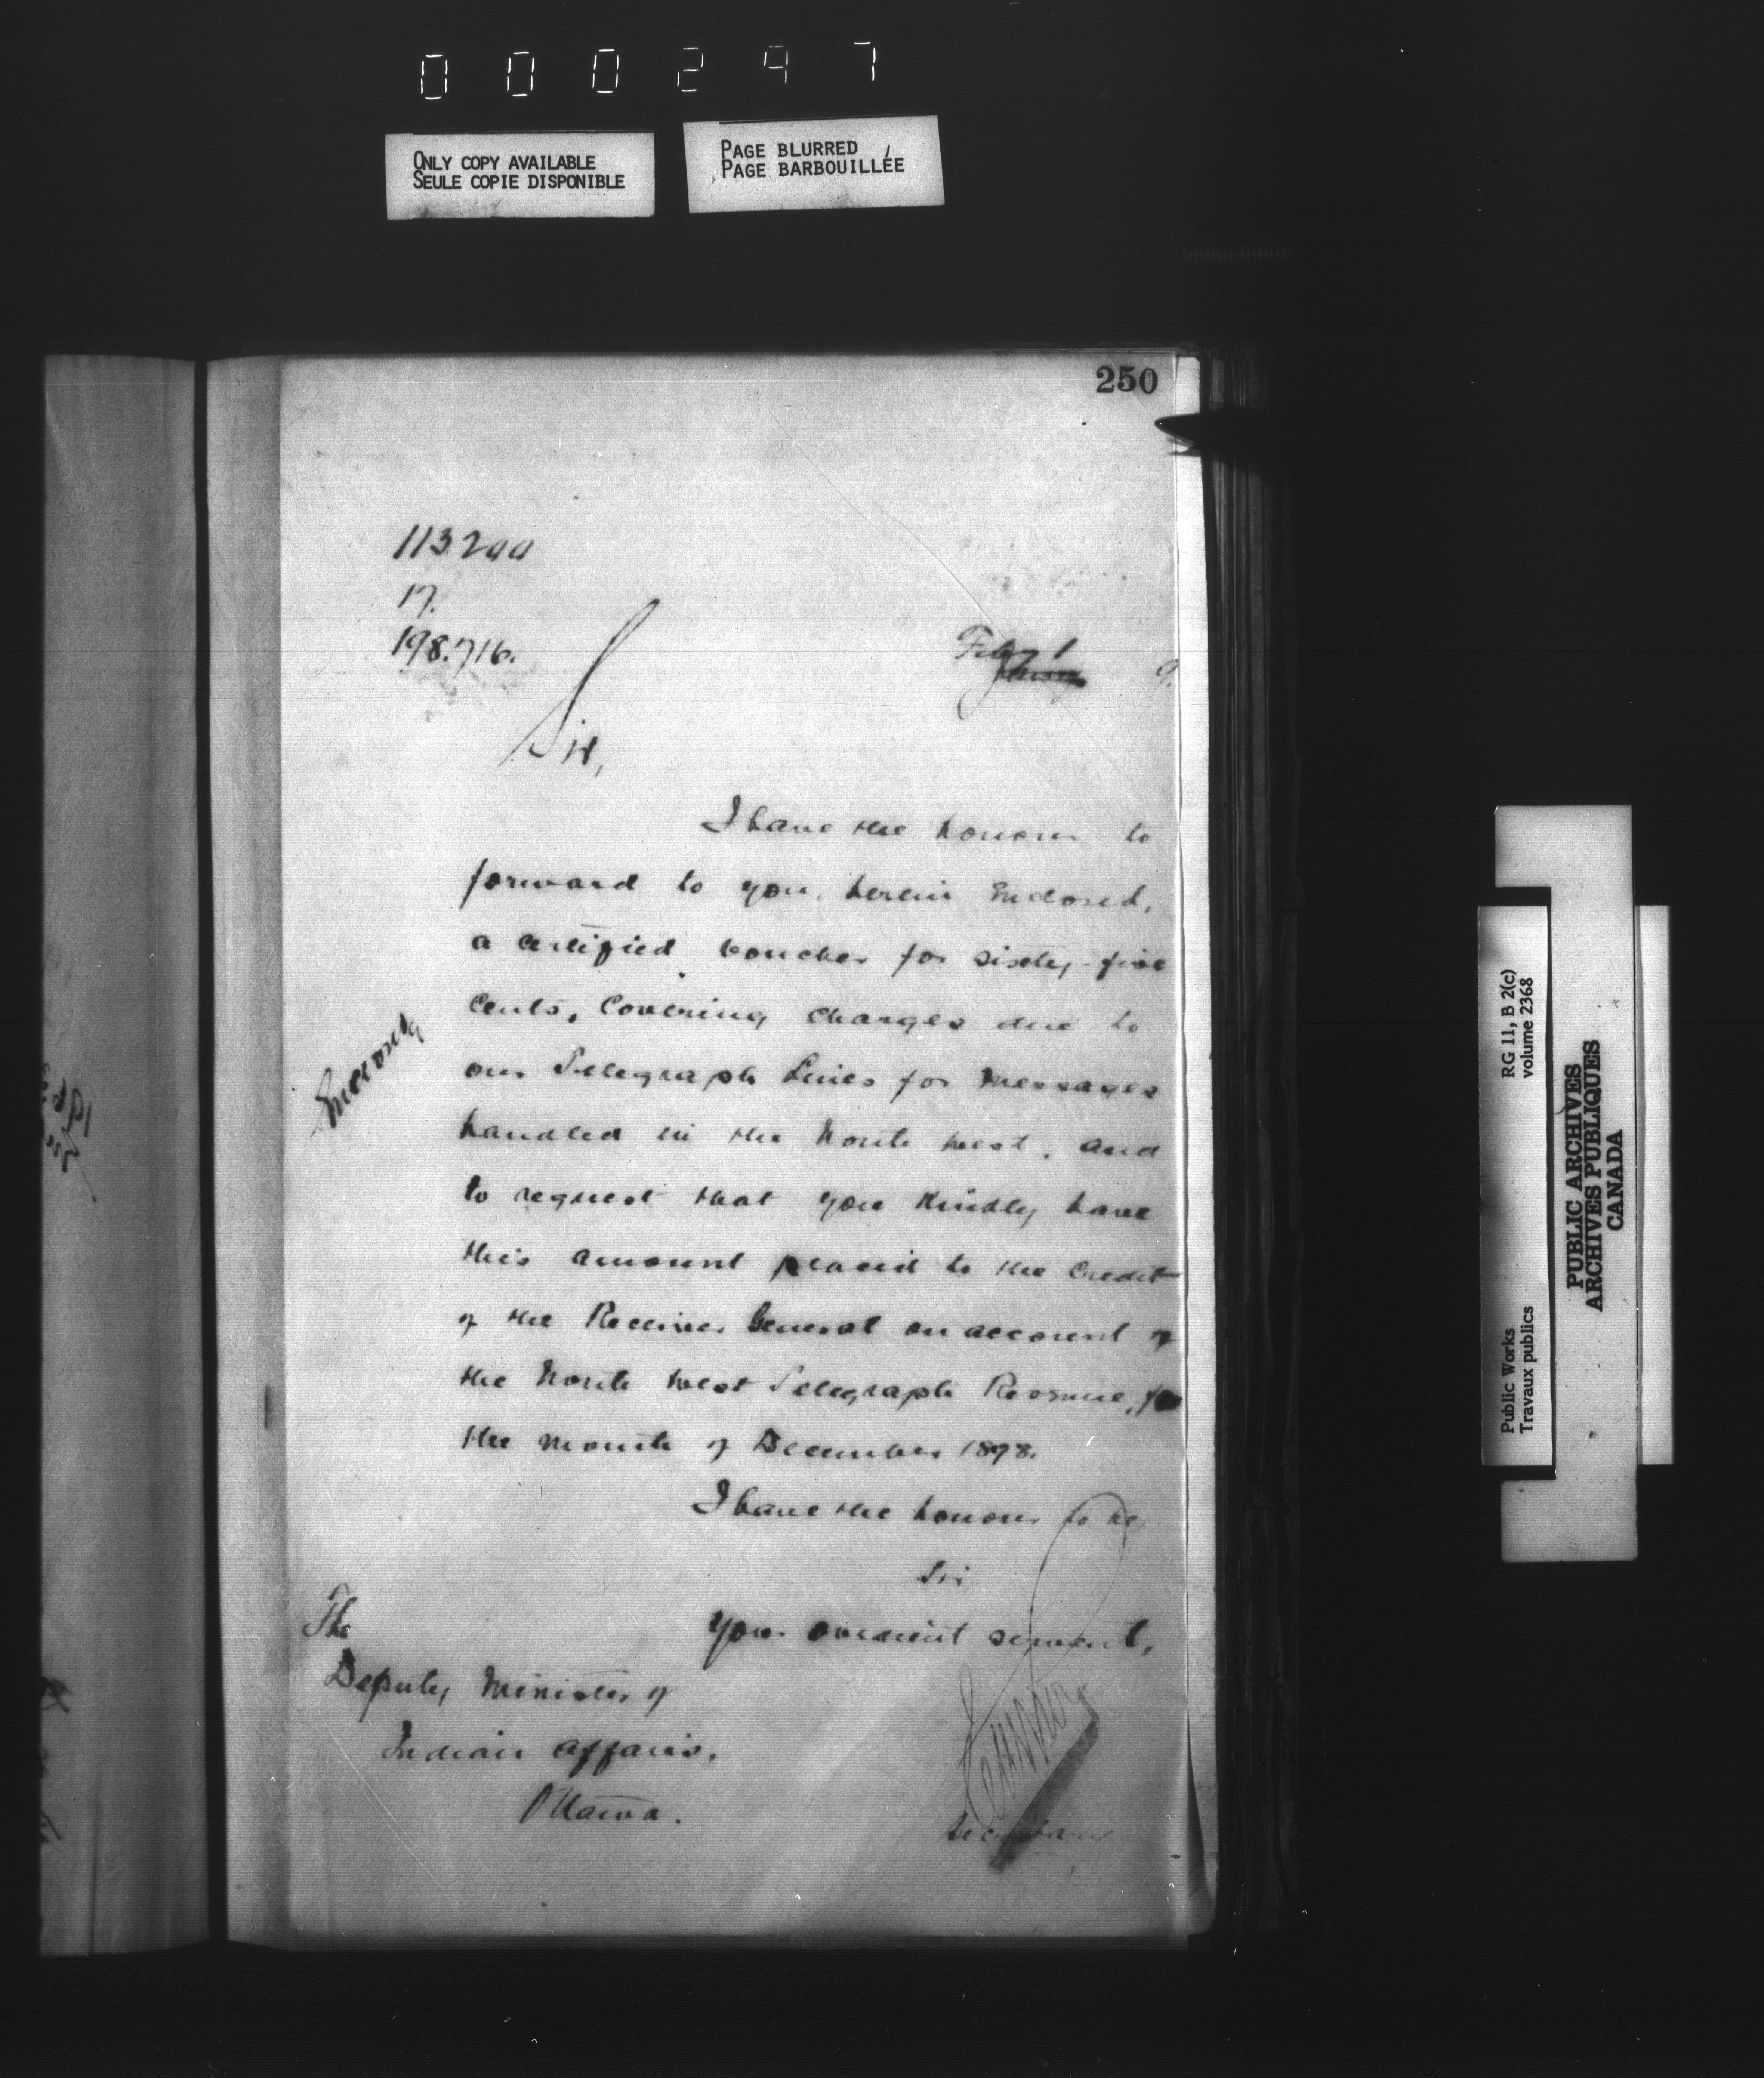 000297
ONLY COPY AVAILABLE
SEULE COPIE DISPONIBLE
PAGE BLURRED
PAGE BARBOUILLÉE
250
17.
198.716.
Feby 1
9.
Sir,
I have the honour to
forward to you, herein Enclosed,
a certified voucher for sixty-five
Cents, Covering charges due to
our Telegraph Lines for Messages
handled in the North West, and
to request that you Kindly have
this amount placed to the Credit
of the Receiver General on account of
the North West Telegraph Revenue, for
the month of December 1898.
I have the honour to be,
Sir
Your obedient servant,
The
Deputy Minister of
Indian Affairs,
Ottawa.
Secretary
RG 11, B 2(c)
volume 2368
Public Works
Travaux publics
PUBLIC ARCHIVES
ARCHIVES PUBLIQUES
CANADA